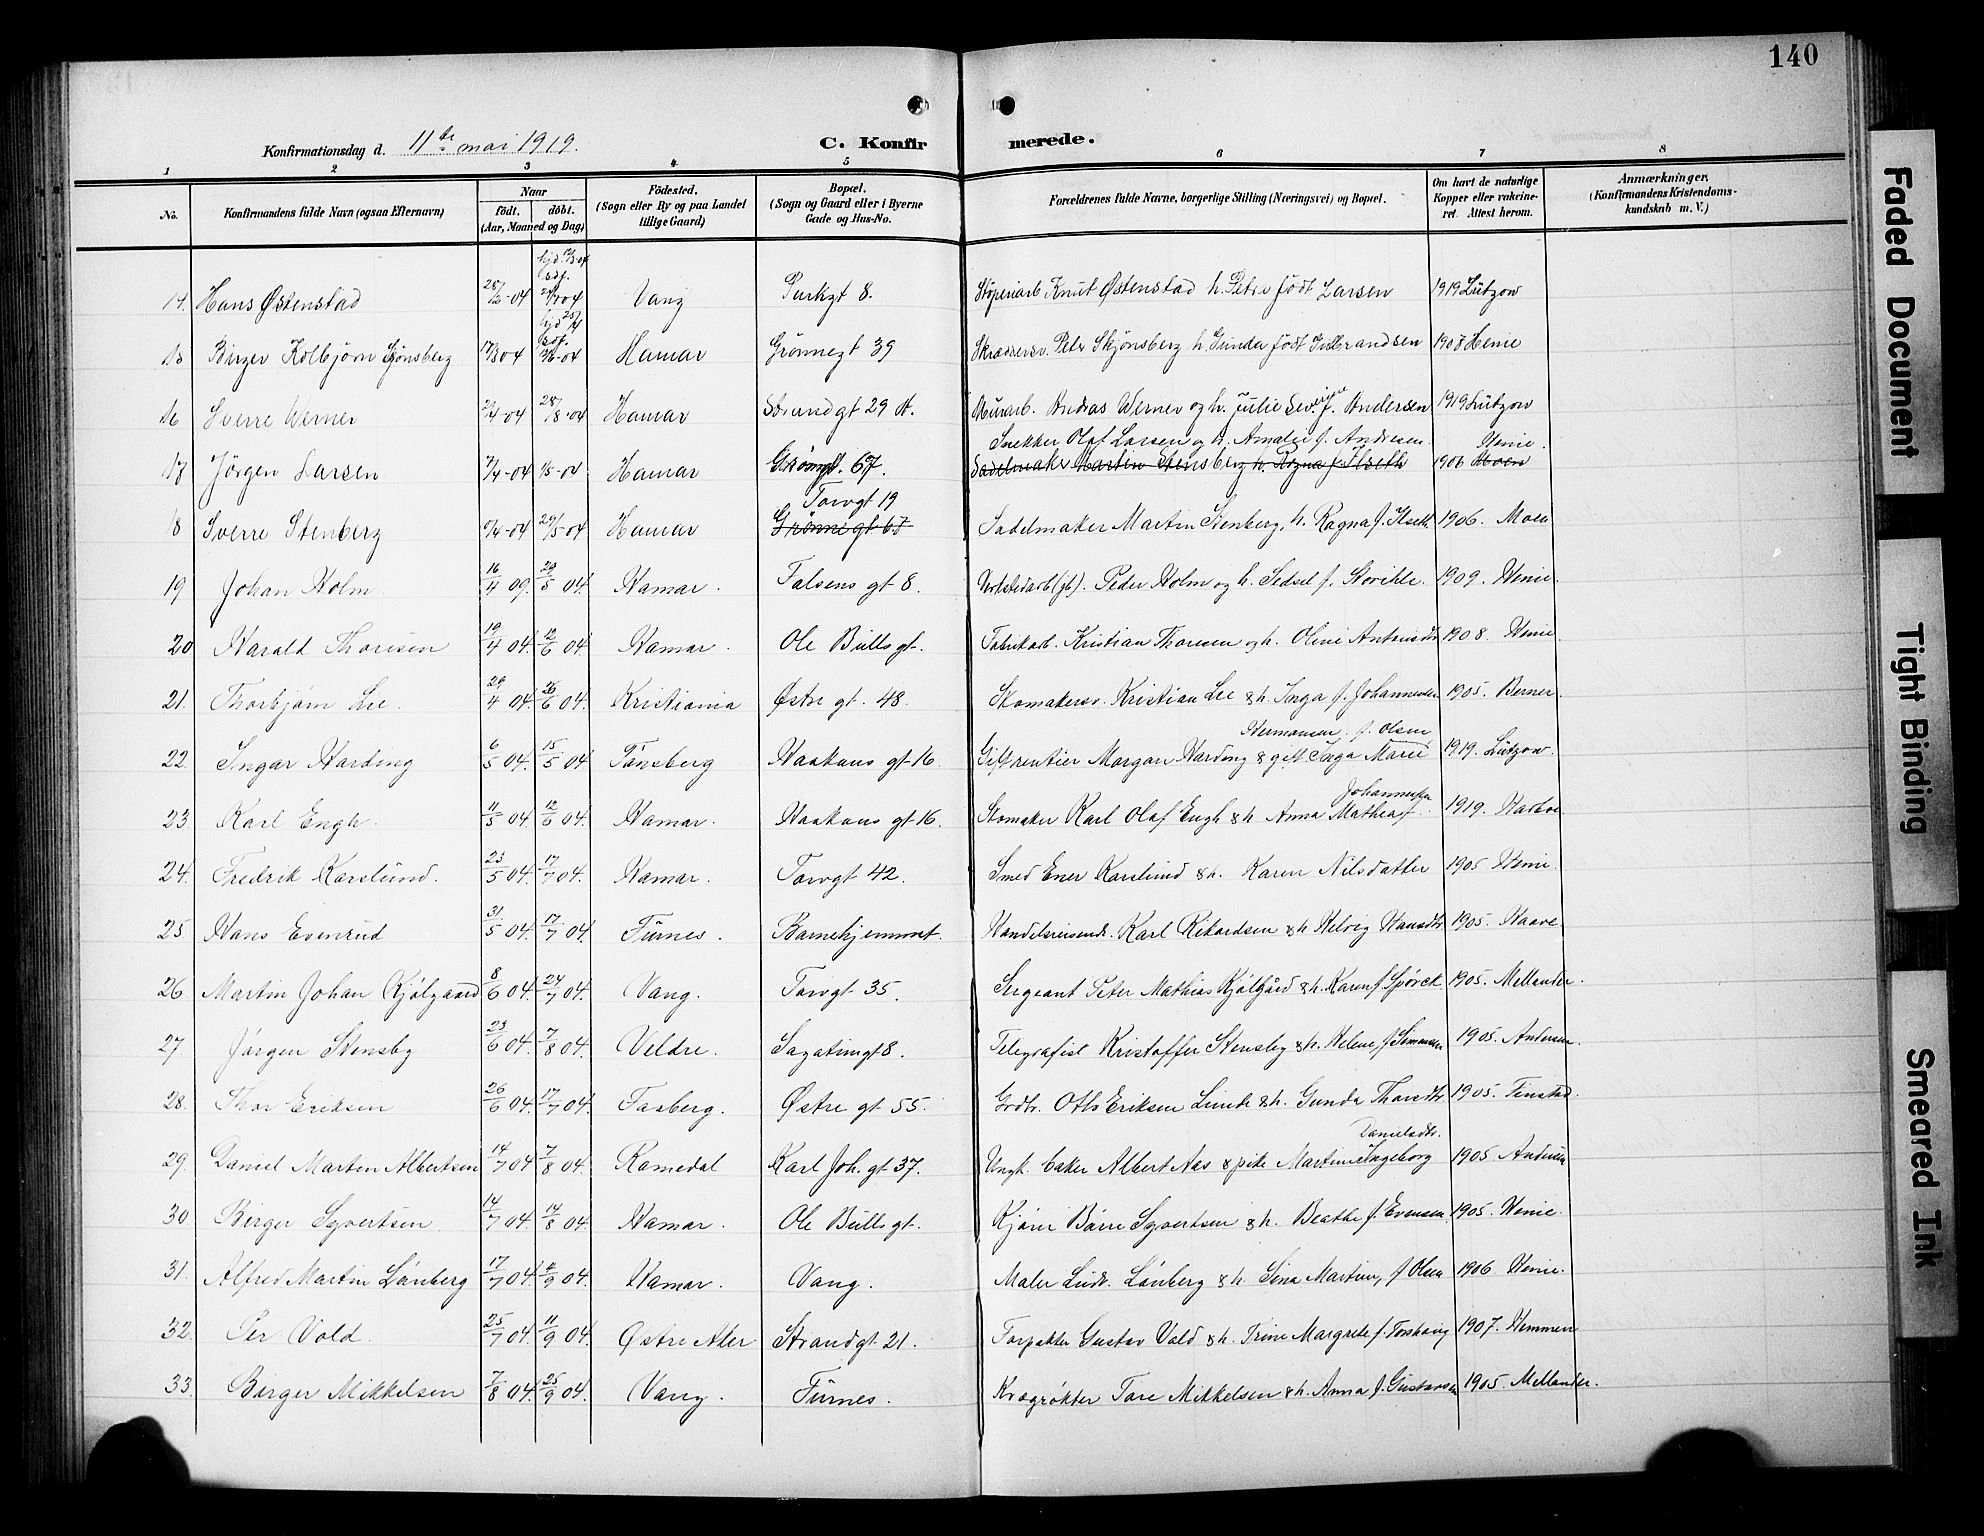 140
Konfirmationsdag d. 11te mai 1919.
C. Konfirmerede.
1 2 3 4 5 6 7 8
No. Konfirmandens fulde Navn (ogsaa Efternavn) Naar födt. döbt. (Aar, Maaned og Dag) Födested, (Sogn eller By og paa Landet tillige Gaard) Bopæl. (Sogn og Gaard eller i Byerne Gade og Hus-No. Forældrenes fulde Navne, borgerlige Stilling (Næringsvei) og Bopæl. Om havt de naturlige Kopper eller vakcineret. Attest herom. Anmærkninger. (Konfirmandens Kristendomskundskab m. V.)
14. Hans Østenstad 28/2-04 Vang Parkgt 8. Støperiarb Knut Østenstad h. Petra födt Larsen 1919 Lützow
15 Birger Kolbjörn Skjönsberg 17/3 04 Hamar Grönnegt 39 Skræddersv. Peter Skjönsberg h. Gunda födt Gulbrandsen 1908 Henie
16 Sverre Werner 2/4-04 28/8-04 Hamar Strandgt 29 A. Murarb. Andras Werner og h. Julie f. Andersen 1919 Lützow
17 Jörgen Larsen 7/4-04 Hamar Grönngt. 67. Snekker Olaf Larsen og h. Amalie f. Andresen. Sadelmaker Martin Stensberg h. Ragna f. Ilseth 1906 Moen Henie.
18 Sverre Stenberg 29/5-04 Hamar Torvgt 19 Grønnegt 67 Sadelmaker Martin Stenberg, h. Ragna f. Ilseth 1906. Moen
19 Johan Holm 16/4 09. 29/5 04. Hamar. Falsens gt 8. Verkstedarb. Peder Holm og h. Sedsel f. Storihle. 1909. Henie.
20 Harald Thoresen 19/4 04. 12/6 04. Hamar. Ole Bulls gt. Fabrikarb. Kristian Thoresen og h. Oline Antonsdtr 1908. Henie
21. Thorbjørn Lie. 29/4 04. 26/6 04. Kristiania Østre gt. 48. Skomakersv. Kristian Lie & h. Inga f. Johannesen 1905. Berner.
22. Ingar Harding 6/5 04. 15/5 04 Tönsberg Haakons gt 16. Gift rentier Morgan Harding & gift Inga Marie Hermansen f. Olsen 1919. Lützow.
23. Karl Engh. 11/5 04. 12/6 04. Hamar. Haakons gt 16. Skomaker Karl Olaf Engh & h Anna Mathea f. Johannessen 1919.
24. Fredrik Karslund. 23/5 04. 17/7 04. Hamar. Torvgt 42. Smed Ener Karslund & h. Karen Nilsdatter 1905 Henie.
25 Hans Evenrud 31/5 04. 17/7 04. Furnes. Barnehjemmet. Handelsreisende. Karl Rikardsen & h Helvig Hansdtr. 1905. Haave.
26 Martin Johan Kjölgaard 8/6 04. 24/7 04. Vang. Torvgt 35. Sergeant Peter Mathias Kjölgård & h. Karen f. Spörck 1905. Mellander.
27 Jørgen Stensby 23/6 04. 7/8 04. Veldre. Sagatun gt 8. Telegrafist Kristoffer Stensby & h. Helene f. Simensen 1905. Andersen.
28. Thor Eriksen 26/6 04. 17/7 04. Faaberg. Østre gt 55. Grdbr. Otto Eriksen Lunde & h. Gunda Thorsdtr. 1905. Finstad.
29. Daniel Marten Albertsen 14/7 04 7/8 04. Romedal Karl Joh. gt 37. Ungk. baker Albert Aas & pike Martine Ingeborg Danielsdtr. 1905 Andersen
30 Birger Syvertsen 14/7 04. 14/8 04. Hamar. Ole Bulls gt. Kjörer Börre Syvertsen & h. Beathe f. Evensen 1905. Henie.
31. Alfred Martin Lönberg 17/7 04. 4/9 04. Hamar. Vang. Maler Ludv. Lönberg & h. Lina Martine, f Olsen 1906. Henie.
32. Per Vold. 25/7 04. 11/9 04. Østre Aker Strandgt 21. Forpakter Gustav Vold & h. Trine Margrete f. Torshaug 1907. Hemmen
33. Birger Mikkelsen 7/8 04. 25/9 04. Vang. Furnes. Krøgrøkter Tore Mikkelsen & h. Anna f. Gustavsen 1905. Mellander.
Faded Document
Tight Binding
Smeared Ink